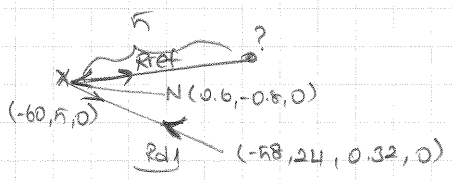 5
?
Rref
X
N(0.6,-0.8,0)
(-60,5,0)
(-58,24,0.32,0)